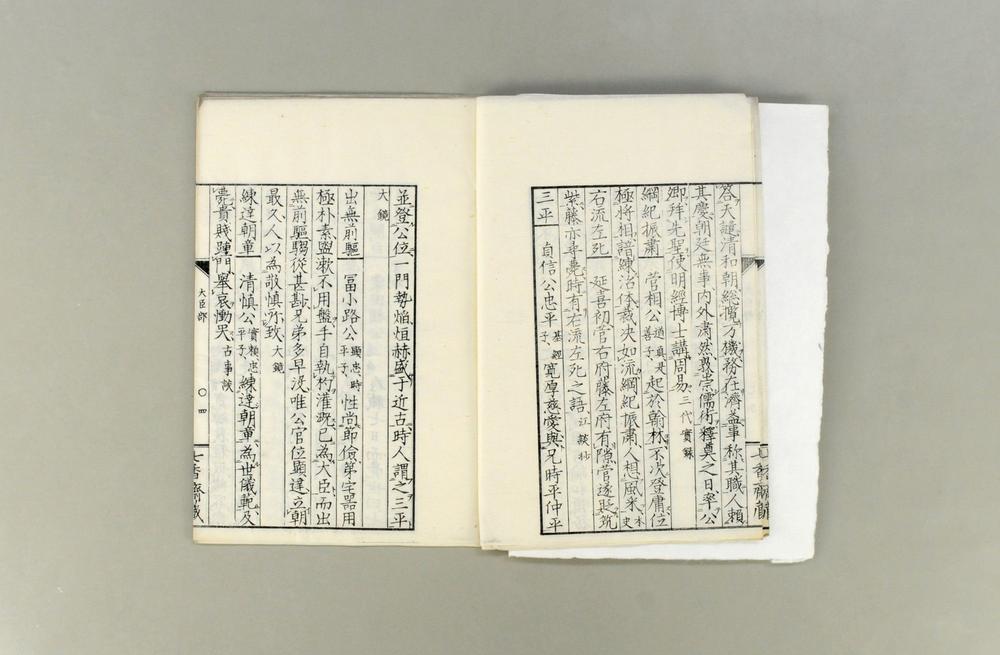 答天譴清和朝総攬万機務在濟益事称其職人賴
其慶朝廷無事內外肅然敦崇儒術釋奠之日率公
卿拜先聖使明經博士講周易 三代實録
綱紀振肅 菅相公 道真是善子 起於翰林不次登庸位
極將相諳練治体裁决如流綱紀振肅人想風采 本史
右流左死 延喜初菅右府藤左府有隙菅遂貶筑
紫藤亦尋薨時有右流左死之語 江談抄
三平 貞信公忠平 基經子 寛厚慈愛與兄時平仲平
並登公位一門勢焔烜赫盛于近古時人謂之三平
大鏡
出無前驅 冨小路公 顕忠時平子 性尚節儉第宇器用
極朴素盥漱不用盤手自執杓灌漑已為大臣而出
無前驅騶從甚尠兄弟多早没唯公官位顯達立朝
最久人以為敬慎所致 大鏡
練達朝章 清慎公 實頼忠平子 練達朝章為世儀範及
薨貴賤踵門舉哀慟哭 古事談
大臣部
〇四
七香齋藏